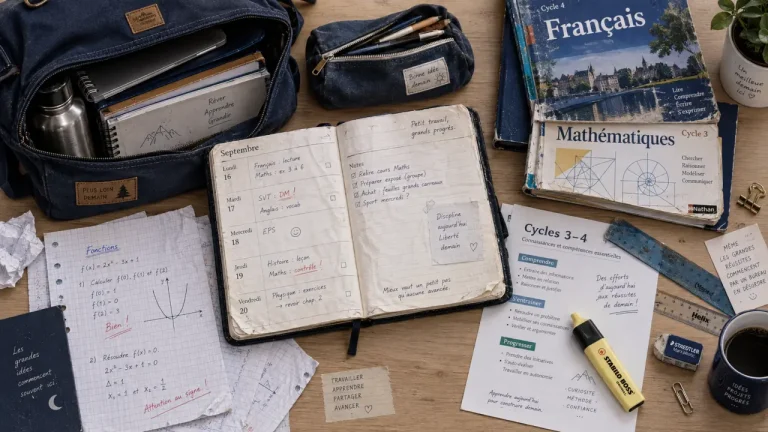 Rêver
Apprendre
Grandir
PLUS LOIN
DEMAIN
Bonne idée
demain
Septembre
Lundi
16
Français : lecture
Maths : ex 3 à 6
Mardi
17
SVT : DM !
Anglais : vocab
Mercredi
18
EPS
Jeudi
19
Histoire : leçon
Maths : contrôle !
Vendredi
20
Physique : exercices
+ revoir chap. 2
Petit travail,
grands progrès.
Notes
Relire cours Maths
Préparer exposé (groupe)
Achat : feuilles grands carreaux
Sport mercredi ?
Discipline
aujourd'hui
Liberté
demain
Mieux vaut un petit pas
qu'aucune avancée.
Cycle 4
Français
Lire
Comprendre
Écrire
S'exprimer
Mathématiques
Cycle 3
Chercher
Raisonner
Modéliser
Communiquer
Nathan
Un
meilleur
demain
Fonctions
f(x) = 2x² - 3x + 1
1) Calculer f(0), f(1) et f(2)
f(0) = 1
f(1) = 0
f(2) = 3
Bien !
2) Résoudre f(x) = 0.
2x² - 3x + 1 = 0
Δ = 1
x₁ = 1 et x₂ = 1/2
Attention au signe !
Les
grandes
idées
commencent
souvent ici.
TRAVAILLER
APPRENDRE
PARTAGER
AVANCER
Cycles 3-4
Connaissances et compétences essentielles
Comprendre
S'entraîner
Progresser
Travailler en autonomie
Des efforts
d'aujourd'hui
aux réussites
de demain !
CURIOSITÉ
MÉTHODE
CONFIANCE
Apprendre aujourd'hui
pour construire demain.
STABILO BOSS
Helix
STAEDTLER
MÊME
LES GRANDES
RÉUSSITES
COMMENCENT
PAR UN BUREAU
EN DÉSORDRE
IDÉES
PROJETS
PROGRÈS